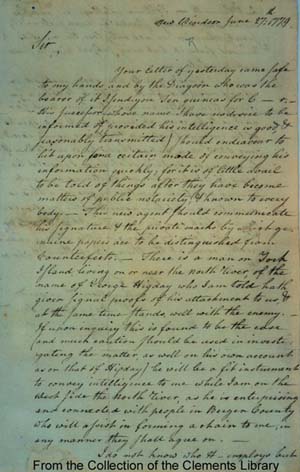 New Windsor June 27th 1779
Sir,
Your letter of yesterday came safe
to my hands and by the Dragoon who was the
bearer of it I send you Ten guineas for C— r.
His successor (whose name I have no desire to be
informed of provided his intelligence is good, &
seasonably transmitted) should endeavour to
hit upon some certain mode of conveying his
information quickly, for it is of little avail
to be told of things after they have become
matters of public notoriety, & known to every
body. — This new agent should communicate
his signature & the private marks by which genuine papers are to be distinguished from
Counterfeits. — There is a man on York
Island living on or near the North River, of the
name of George Higday who I am told hath
given signal proofs of his attachment to us, &
at the same time stands well with the enemy. —
If upon enquiry this is found to be the case
(and much caution should be used in investi-
gating the matter, as well on his own account
as on that of Higday) he will be a fit instrument
to convey intelligence to me while I am on the
West side the North River, as he is enterprizing
and connected with people in Bergen County
who will assist in forming a chain to me, in
any manner they shall agree on. —
I do not know who H employs but
From the Collection of the Clements Library